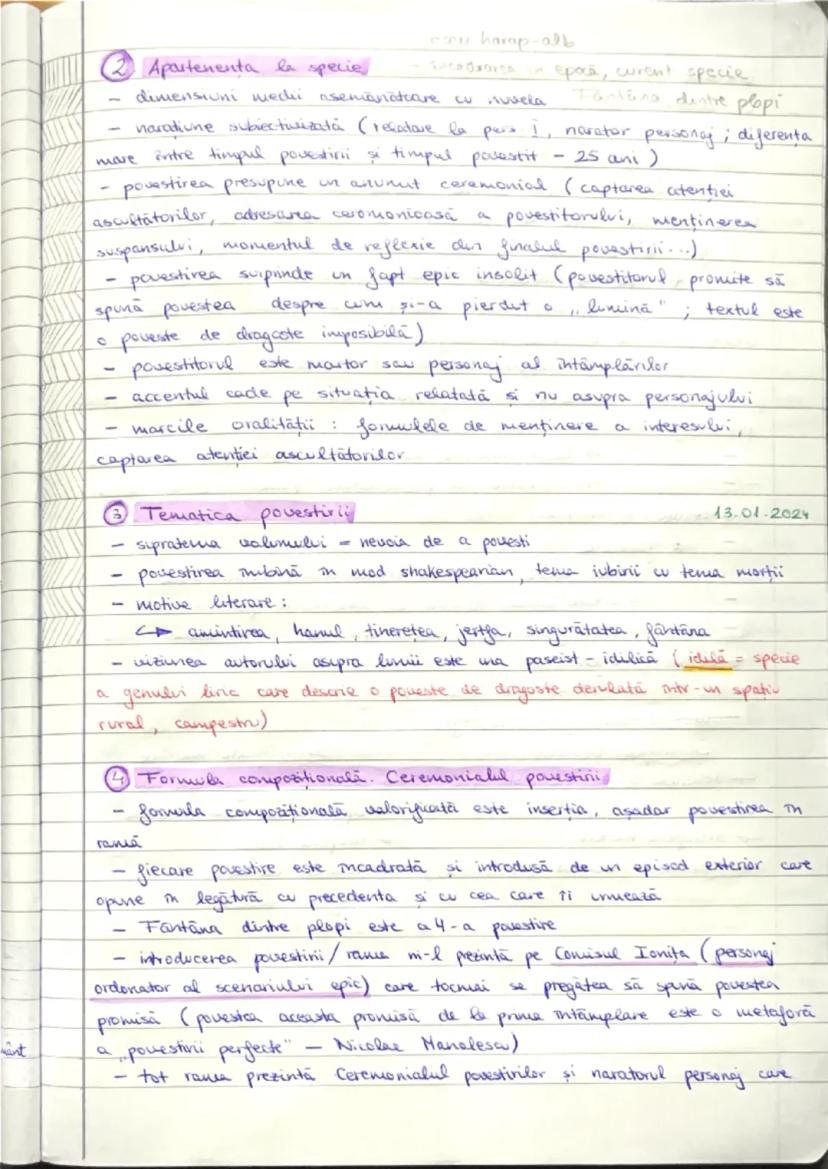 eseu harap-alb
② Apartenența la specie - încadrarea în epocă, curent specie
- dimensiuni medii asemănătoare cu nuvela Fântâna dintre plopi
- narațiune subiectivizată (relatare la pers I, narator personaj; diferența
mare între timpul povestirii și timpul povestit - 25 ani)
- povestirea presupune un anumit ceremonial (captarea atenției
ascultătorilor, adresarea ceromonioasă a povestitorului, menținerea
suspansului, momentul de reflexie din finalul povestirii...)
- povestirea surprinde un fapt epic insolit (povestitorul promite să
spună povestea despre cum și-a pierdut o „lumină"; textul este
o poveste de dragoste imposibilă)
- povestitorul este martor sau personaj al întâmplărilor
- accentul cade pe situația relatată și nu asupra personajului
- marcile oralității: formulele de menținere a interesului,
captarea atenției ascultătorilor
③ Tematica povestirii 13.01.2024
- supratema volumului = nevoia de a povesti
- povestirea îmbină în mod shakespearian, tema iubirii cu tema morții
- motive literare:
↳ amintirea, hanul, tinerețea, jertfa, singurătatea, fântâna
- viziunea autorului asupra lumii este una paseist-idilică (idilă = specie
a genului liric care descrie o poveste de dragoste derulată într-un spațiu
rural, campestru)
④ Formula compozițională. Ceremonialul povestirii
- formula compozițională valorificată este inserția, așadar povestirea în
ramă
- fiecare povestire este încadrată și introdusă de un episod exterior care
o pune în legătură cu precedenta și cu cea care îi urmează
- Fântâna dintre plopi este a 4-a povestire
- introducerea povestirii/rama ni-l prezintă pe Comisul Ioniță (personaj
ordonator al scenariului epic) care tocmai se pregătea să spună povestea
promisă (povestea aceasta promisă de la prima întâmplare este o metaforă
a „povestirii perfecte" - Nicolae Manolescu)
- tot rama prezintă Ceremonialul povestirilor și naratorul personaj care